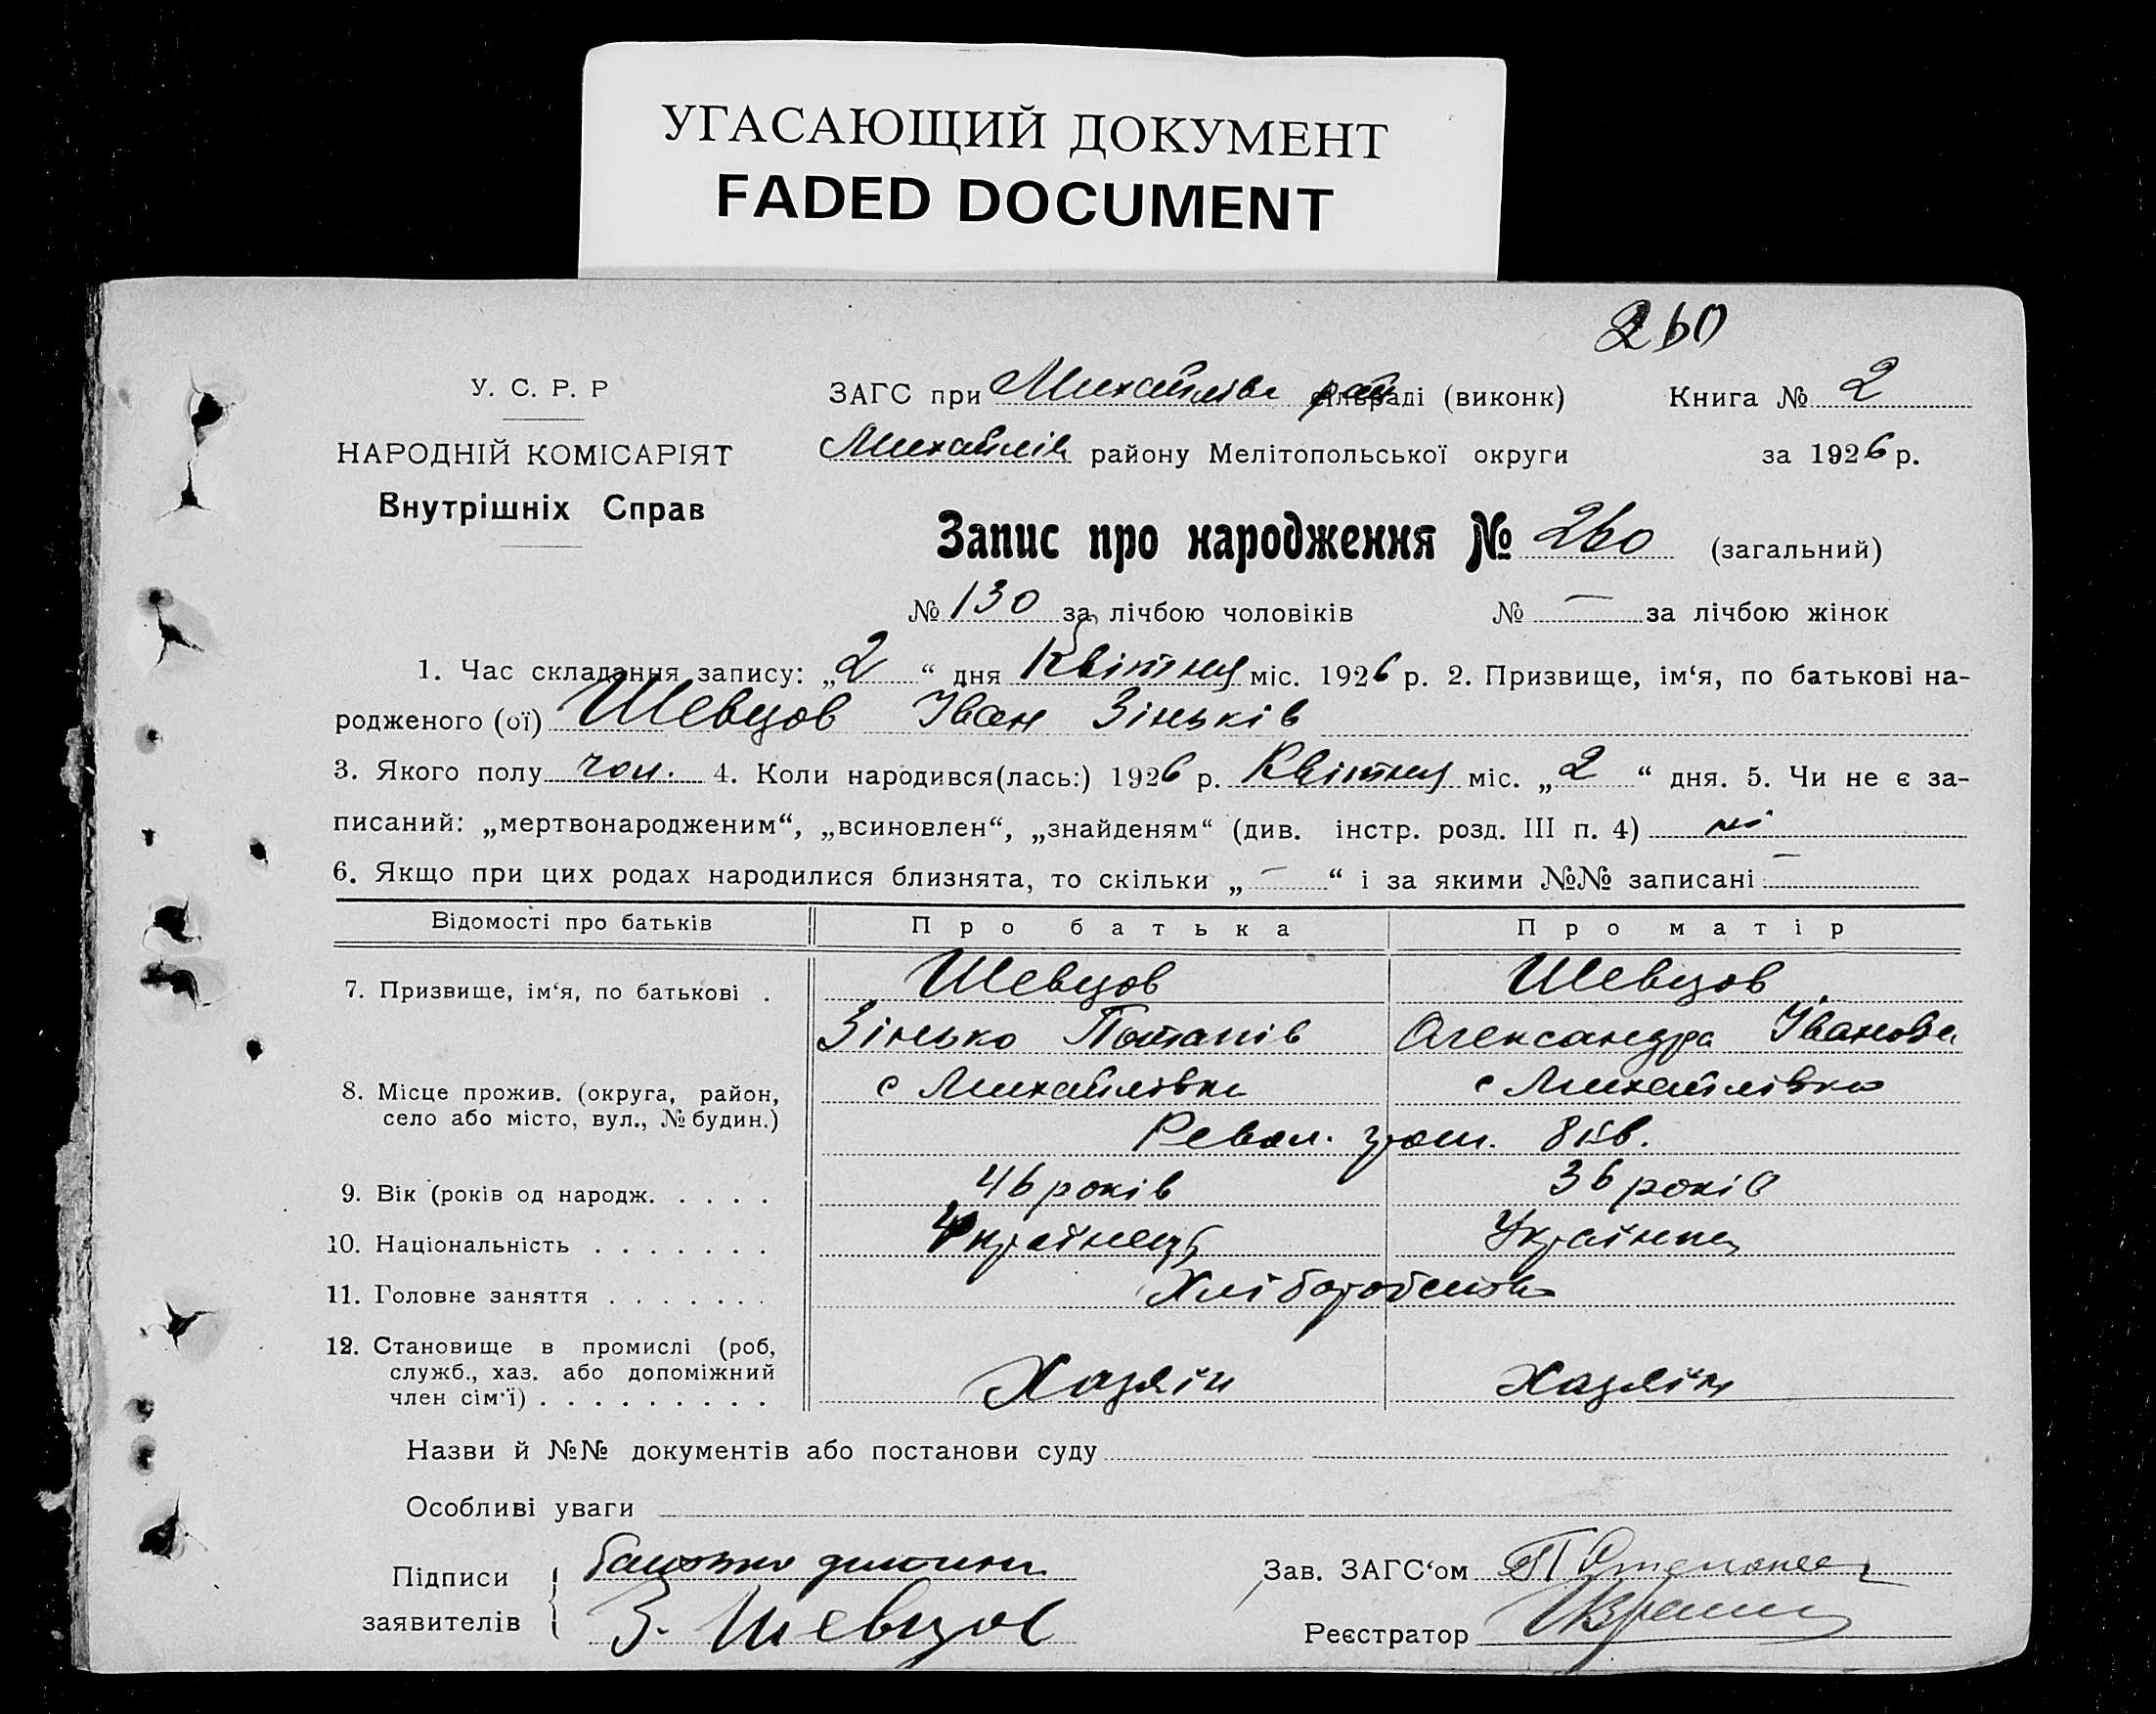 УГАСАЮЩИЙ ДОКУМЕНТ
FADED DOCUMENT
260
У. С. Р. Р
НАРОДНІЙ КОМІСАРІЯТ
Внутрішніх Справ
ЗАГС при Михайлівс рай сільраді (виконк) Книга № 2
Михайлів району Мелітопольської округи за 1926 р.
Запис про народження № 260 (загальний)
№ 130 за лічбою чоловіків № — за лічбою жінок
1. Час складання запису: „2“ дня Квітня міс. 1926 р. 2. Призвище, ім‘я, по батькові на-
родженого (ої) Шевцов Іван Зіньків
3. Якого полу чол. 4. Коли народився(лась:) 1926 р. Квітня міс. „2“ дня. 5. Чи не є за-
писаний: „мертвонародженим“, „всиновлен“, „знайденям“ (див. інстр. розд. III п. 4) ні
6. Якщо при цих родах народилися близнята, то скільки „—“ і за якими №№ записані —
Відомості про батьків Про батька Про матір
7. Призвище, ім‘я, по батькові . Шевцов Шевцов
Зінько Потапів Олександра Іванова
8. Місце прожив. (округа, район, с Михайлівка с Михайлівка
село або місто, вул., № будин.) Револ. 8 кв.
9. Вік (років од народж. . . . . 46 років 36 років
10. Національність . . . . . . . Українець Українка
11. Головне заняття . . . . . . . Хліборобство
12. Становище в промислі (роб,
служб., хаз. або допоміжний Хазяїн Хазяїн
член сім‘ї) . . . . . . . . .
Назви й №№ документів або постанови суду
Особливі уваги
Підписи батько дитини Зав. ЗАГС‘ом
заявителів З. Шевцов Реєстратор